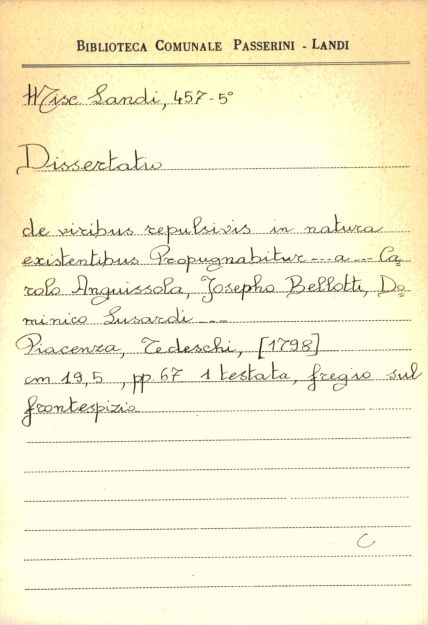 BIBLIOTECA COMUNALE PASSERINI - LANDI
Misc Landi, 457-5°
Dissertatio
de viribus repulsivis in natura
existentibus Propugnabitur --- a --- Ca=
rolo Anguissola, Josepho Bellotti, Do=
minico Lusardi ---
Piacenza, Tedeschi, [1798]
cm 19,5 , pp 67 1 testata, fregio sul
frontespizio
C